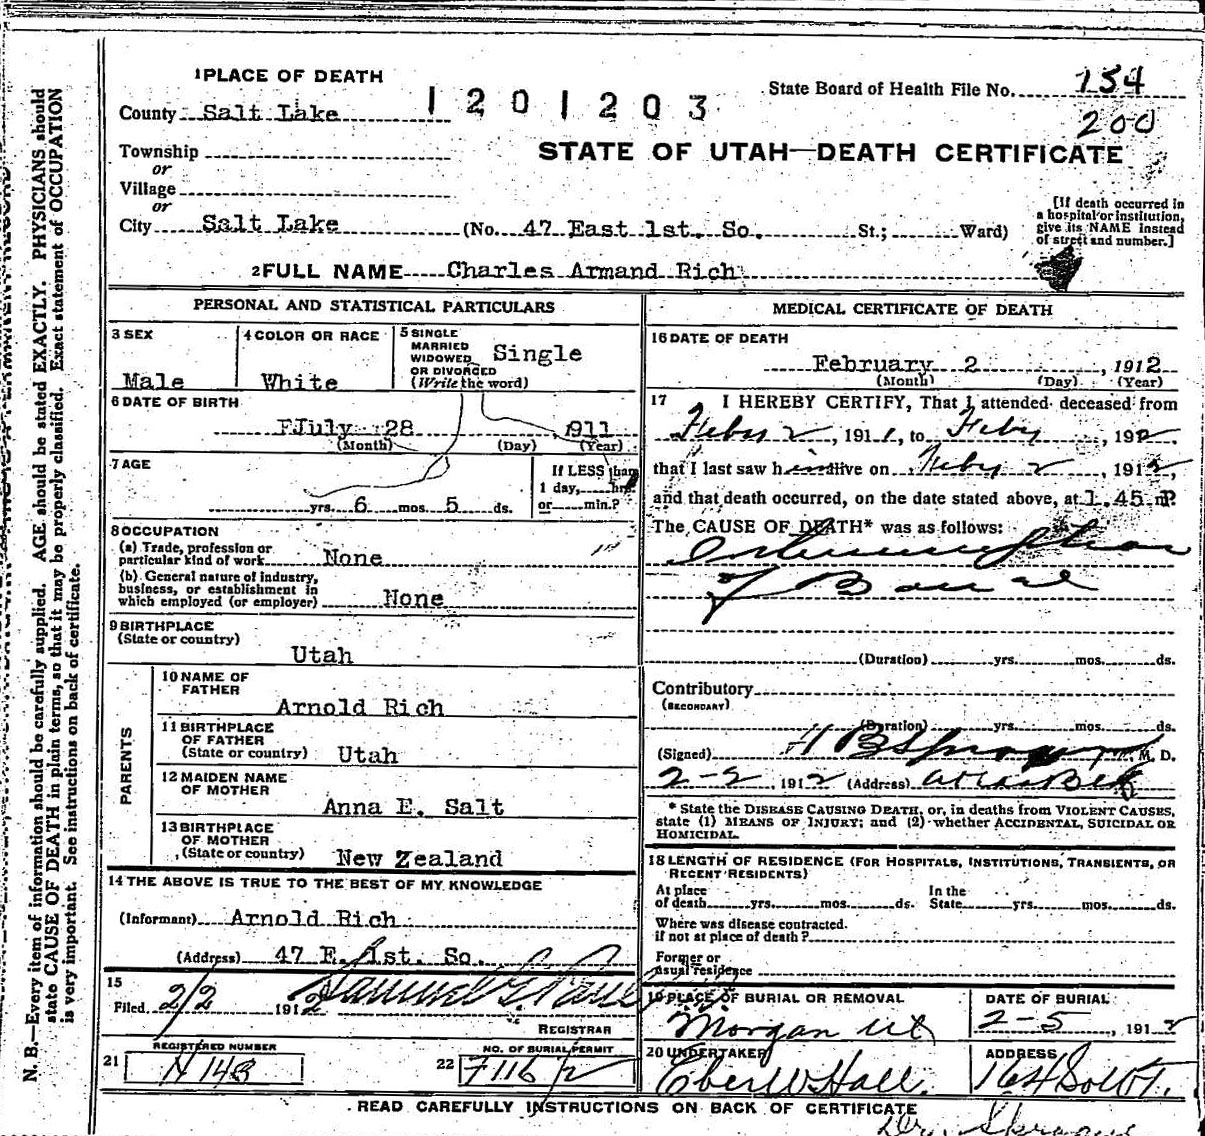 1 PLACE OF DEATH
County Salt Lake
1201203
State Board of Health File No. 154
200
STATE OF UTAH—DEATH CERTIFICATE
Township
or
Village
or
City Salt Lake (No. 47 East 1st. So. St.; Ward)
[If death occurred in
a hospital or institution,
give its NAME instead
of street and number.]
2 FULL NAME Charles Armand Rich
PERSONAL AND STATISTICAL PARTICULARS
3 SEX
Male
4 COLOR OR RACE
White
5 SINGLE
MARRIED
WIDOWED
OR DIVORCED
(Write the word)
Single
6 DATE OF BIRTH
July 28 1911
(Month) (Day) (Year)
7 AGE
yrs. 6 mos. 5 ds.
If LESS than
1 day, hrs.
or min.?
8 OCCUPATION
(a) Trade, profession or
particular kind of work None
(b) General nature of industry,
business, or establishment in
which employed (or employer) None
9 BIRTHPLACE
(State or country)
Utah
PARENTS
10 NAME OF
FATHER
Arnold Rich
11 BIRTHPLACE
OF FATHER
(State or country) Utah
12 MAIDEN NAME
OF MOTHER
Anna E. Salt
13 BIRTHPLACE
OF MOTHER
(State or country) New Zealand
14 THE ABOVE IS TRUE TO THE BEST OF MY KNOWLEDGE
(Informant) Arnold Rich
(Address) 47 E. 1st. So.
15
Filed 2/2 1912 Samuel G.
REGISTRAR
REGISTERED NUMBER
21 H 143
NO. OF BURIAL PERMIT
22 F 116
MEDICAL CERTIFICATE OF DEATH
16 DATE OF DEATH
February 2, 1912
(Month) (Day) (Year)
17 I HEREBY CERTIFY, That I attended deceased from
Feby 2, 1911, to Feby, 1912
that I last saw him alive on Feby 2, 1912,
and that death occurred, on the date stated above, at 1.45 P
The CAUSE OF DEATH* was as follows:
of Bowel
(Duration) yrs. mos. ds.
Contributory
(SECONDARY)
(Duration) yrs. mos. ds.
(Signed) H B Sprague, M. D.
2-2, 1912 (Address) Atlas Blk
* State the DISEASE CAUSING DEATH, or, in deaths from VIOLENT CAUSES,
state (1) MEANS OF INJURY; and (2) whether ACCIDENTAL, SUICIDAL OR
HOMICIDAL.
18 LENGTH OF RESIDENCE (FOR HOSPITALS, INSTITUTIONS, TRANSIENTS, OR
RECENT RESIDENTS)
At place
of death yrs. mos. ds.
In the
State yrs. mos. ds.
Where was disease contracted.
if not at place of death?
Former or
usual residence
19 PLACE OF BURIAL OR REMOVAL
Morgan Ut
DATE OF BURIAL
2-5, 1912
20 UNDERTAKER
Eber W Hall.
ADDRESS
READ CAREFULLY INSTRUCTIONS ON BACK OF CERTIFICATE
Dr. Sprague
N. B.—Every item of information should be carefully supplied. AGE should be stated EXACTLY. PHYSICIANS should
state CAUSE OF DEATH in plain terms, so that it may be properly classified. Exact statement of OCCUPATION
is very important. See instructions on back of certificate.